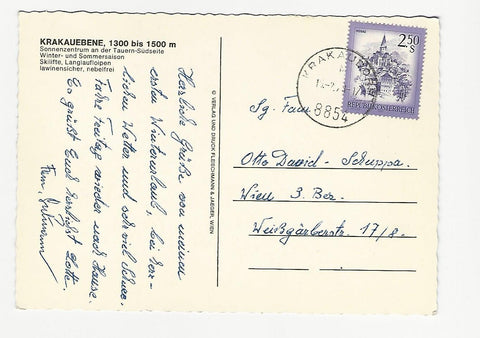 KRAKAUEBENE, 1300 bis 1500 m
Sonnenzentrum an der Tauern-Südseite
Winter- und Sommersaison
Skilifte, Langlaufloipen
lawinensicher, nebelfrei
Herzliche Grüße von meinem
ersten Winterurlaub, bei herr-
lichem Wetter und sehr viel Schnee.
Fahre Freitag wieder nach Hause.
Es grüßt Euch herzlichst
© VERLAG UND DRUCK FLEISCHMANN & JAEGER, WIEN
KRAKAUEBENE
8854
2.50
S
REPUBLIK ÖSTERREICH
Sg. Fam.
Otto David - Schuppa.
Wien 3. Bez.
Weißgärberstr. 17/8.